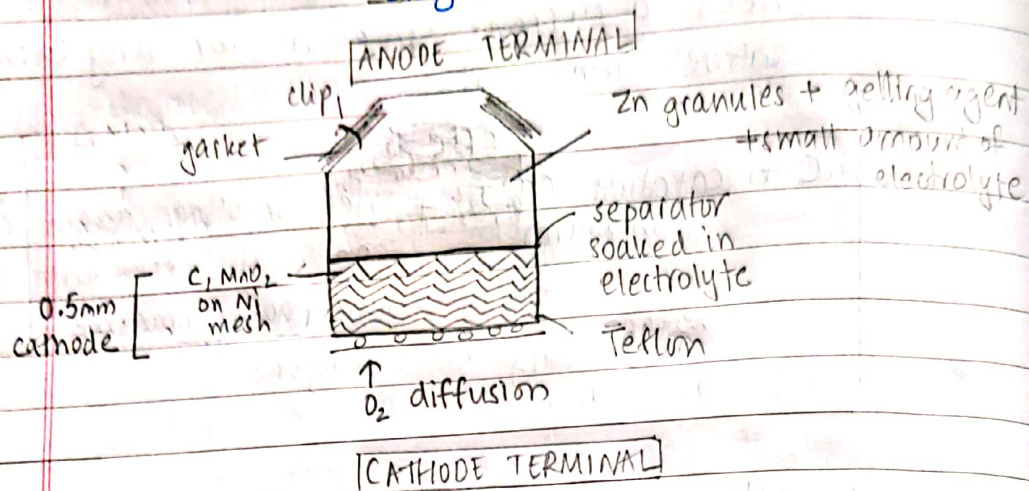 ANODE TERMINAL
clip
gasket
Zn granules + gelling agent
+small amount of
electrolyte
separator
soaked in
electrolyte
C, MnO2
on Ni
mesh
0.5mm
cathode
Teflon
O2 diffusion
CATHODE TERMINAL